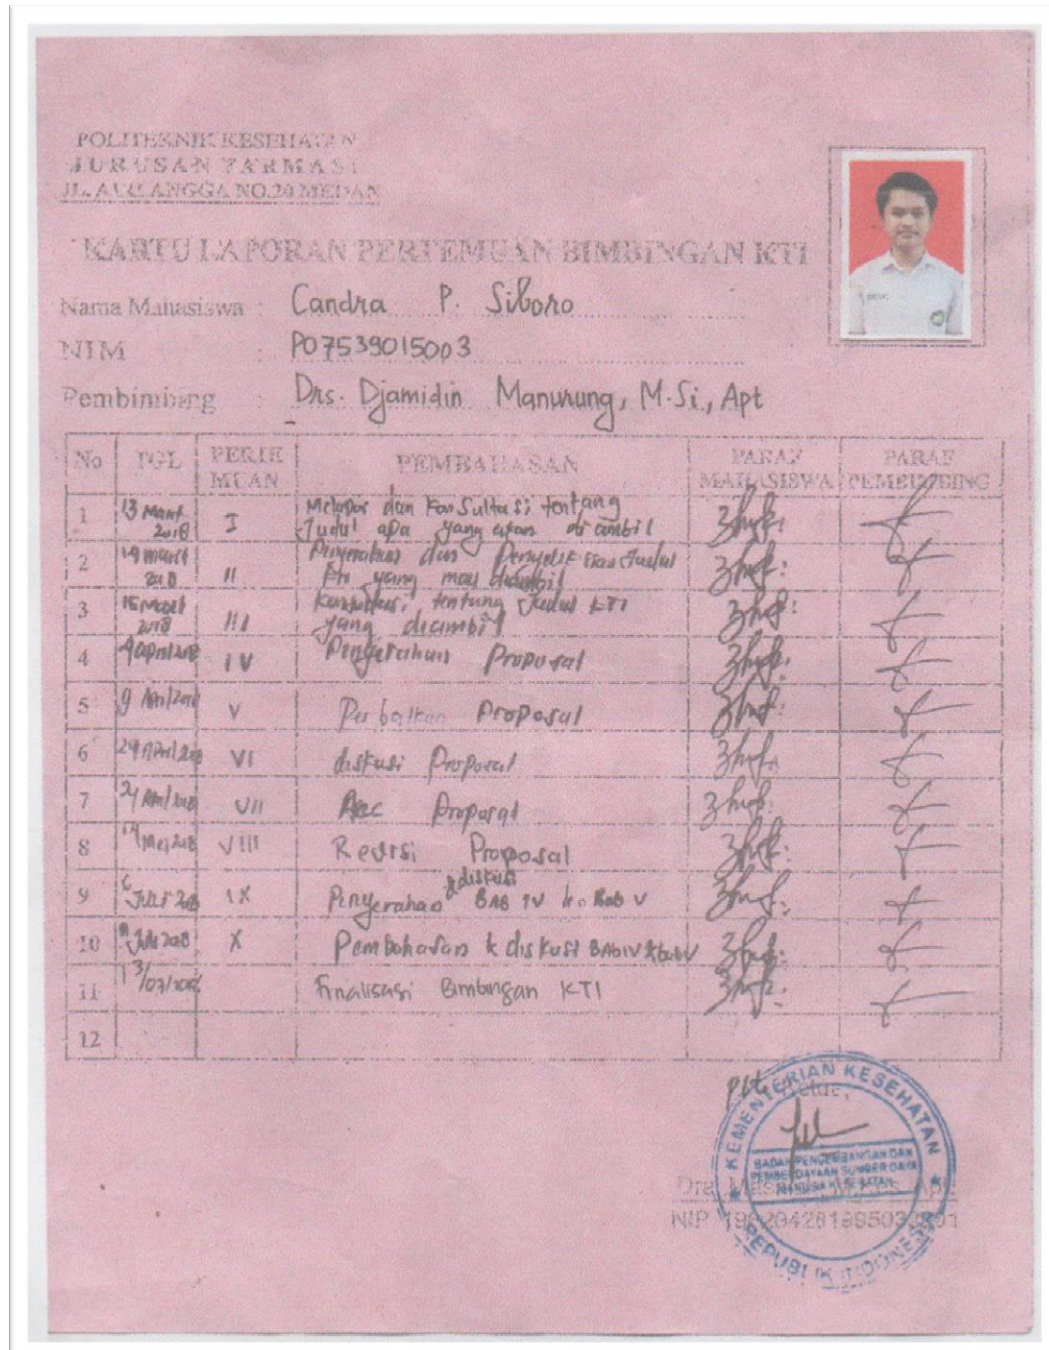 POLITEKNIK KESEHATAN
JURUSAN FARMASI
JL. AIRLANGGA NO.20 MEDAN
KARTU LAPORAN PERTEMUAN BIMBINGAN KTI
Nama Mahasiswa : Candra P. Siboro
NIM : P07539015003
Pembimbing : Drs. Djamidin Manurung, M.Si., Apt
No TGL PERTE MUAN PEMBAHASAN PARAF MAHASISWA PARAF PEMBIMBING
1 13 Maret 2018 I Melapor dan Konsultasi tentang
Judul apa yang akan di ambil
2 14 Maret 2018 II Penyerahan dan Judul
KTI yang mau diambil
3 15 Maret 2018 III Konsultasi tentang Judul KTI
yang diambil
4 4 April 2018 IV Penyerahan Proposal
5 9 April 2018 V Perbaikan Proposal
6 24 April 2018 VI diskusi Proposal
7 April 2018 VII Acc Proposal
8 Mei 2018 VIII Revisi Proposal
9 6 Juli 2018 IX Penyerahan & diskusi BAB IV ke Bab V
10 Juli 2018 X Pembahasan & diskusi BAB IV & bab V
11 13/07/2018 finalisasi Bimbingan KTI
12
plt. Ketua,
KEMENTERIAN KESEHATAN
BADAN PENGEMBANGAN DAN
PEMBERDAYAAN SUMBER DAYA
MANUSIA KESEHATAN
REPUBLIK INDONESIA
Dra. Apt
NIP